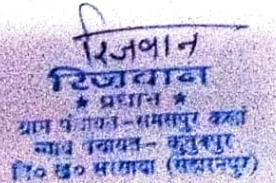 रिजवान
रिजवान
★ प्रधान ★
ग्राम पंचायत-समसपुर कलां
न्याय पंचायत- कुतुबपुर
वि० ख० सरसावा (सहारनपुर)